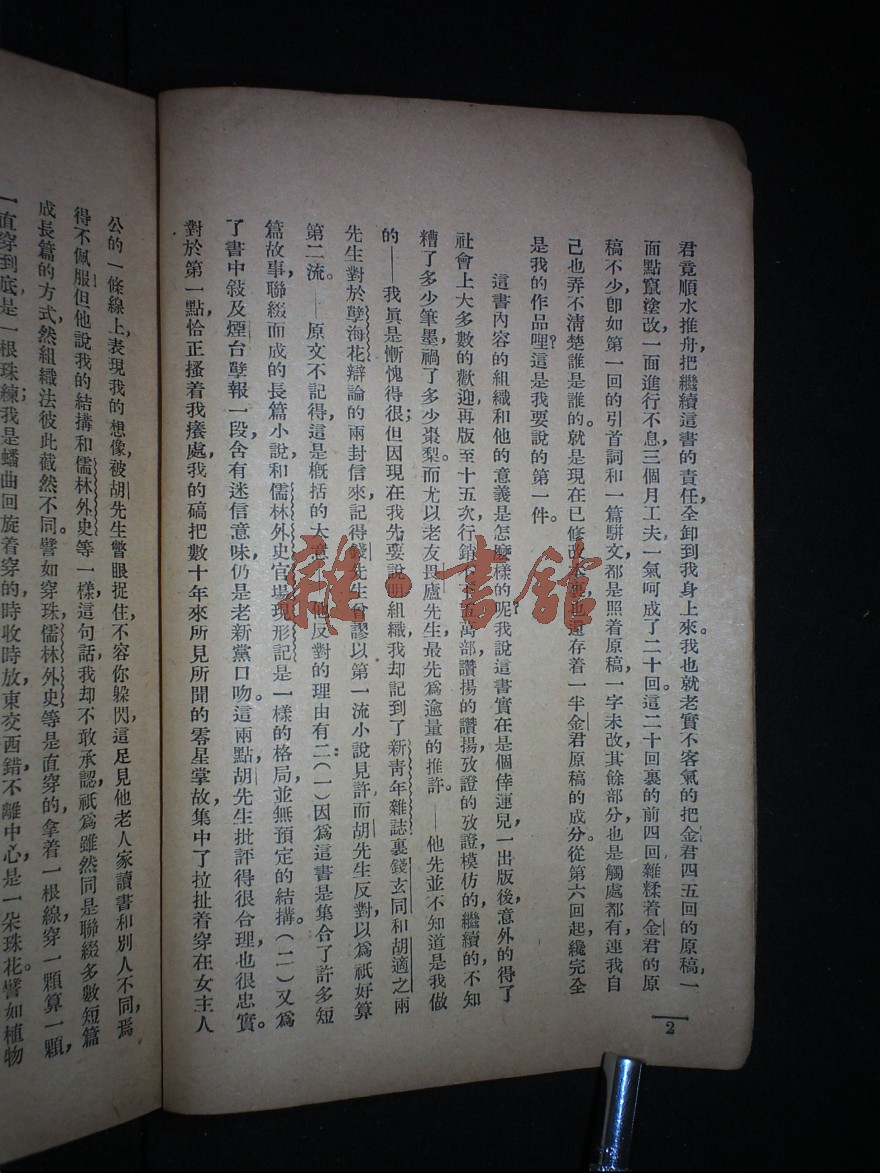 君竟順水推舟，把繼續這書的責任，全卸到我身上來。我也就老實不客氣的把金君四五回的原稿，一
面點竄塗改，一面進行不息，三個月工夫，一氣呵成了二十回。這二十回裏的前四回，雜糅着金君的原
稿不少，卽如第一回的引首詞和一篇駢文，都是照着原稿，一字未改，其餘部分，也是觸處都有，連我自
己也弄不清楚誰是誰的。就是現在已修改本裏，也還存着一半金君原稿的成分。從第六回起，纔完全
是我的作品哩。這是我要說的第一件。
這書內容的組織和他的意義是怎麼樣的呢？我說這書實在是個倖運兒，一出版後，意外的得了
社會上大多數的歡迎，再版至十五次，行銷不下五萬部，讚揚的讚揚，攷證的攷證，模仿的，繼續的，不知
糟了多少筆墨，禍了多少棗梨。而尤以老友畏廬先生，最先爲逾量的推許。——他先並不知道是我做
的——我眞是慚愧得很；但因現在我先要說明組織，我却記到了新靑年雜誌裏錢玄同和胡適之兩
先生對於孽海花辯論的兩封信來，記得錢先生曾謬以第一流小說見許，而胡先生反對，以爲祇好算
第二流。——原文不記得，這是概括的大意——他反對的理由有二：（一）因爲這書是集合了許多短
篇故事，聯綴而成的長篇小說，和儒林外史官場現形記是一樣的格局，並無預定的結搆。（二）又爲
了書中敍及煙台孽報一段，含有迷信意味，仍是老新黨口吻。這兩點，胡先生批評得很合理，也很忠實。
對於第一點，恰正搔着我癢處，我的確把數十年來所見所聞的零星掌故，集中了拉扯着穿在女主人
公的一條線上，表現我的想像，被胡先生瞥眼捉住，不容你躲閃，這足見他老人家讀書和別人不同，焉
得不佩服！但他說我的結搆和儒林外史等一樣，這句話，我却不敢承認，祇爲雖然同是聯綴多數短篇
成長篇的方式，然組織法彼此截然不同。譬如穿珠，儒林外史等是直穿的，拿着一根線，穿一顆算一顆，
一直穿到底，是一根珠練；我是蟠曲回旋着穿的，時收時放，東交西錯，不離中心，是一朵珠花。譬如植物
2
雜·書館